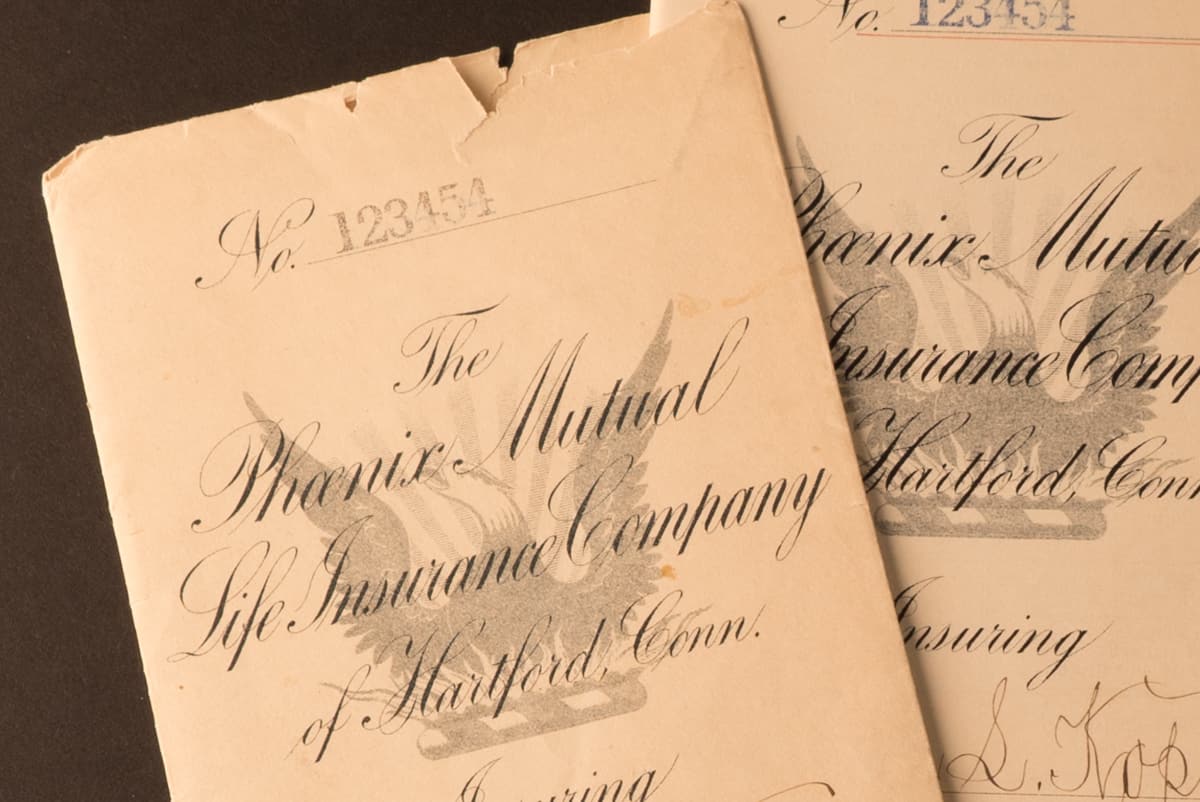 No. 123454
The
Phœnix Mutual
Life Insurance Company
of Hartford, Conn.
Insuring
No. 123454
The
Phœnix Mutua
Insurance Comp
Hartford, Conn
Insuring
S. Kop